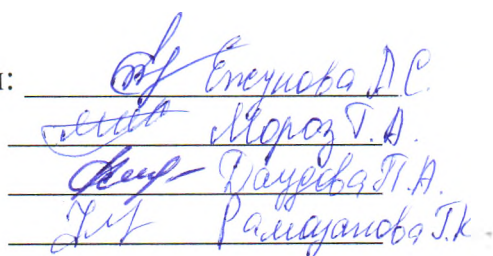 : Ежунова Л.С.
Мороз Т.А.
Даудова П.А.
Рамазанова Г.К.